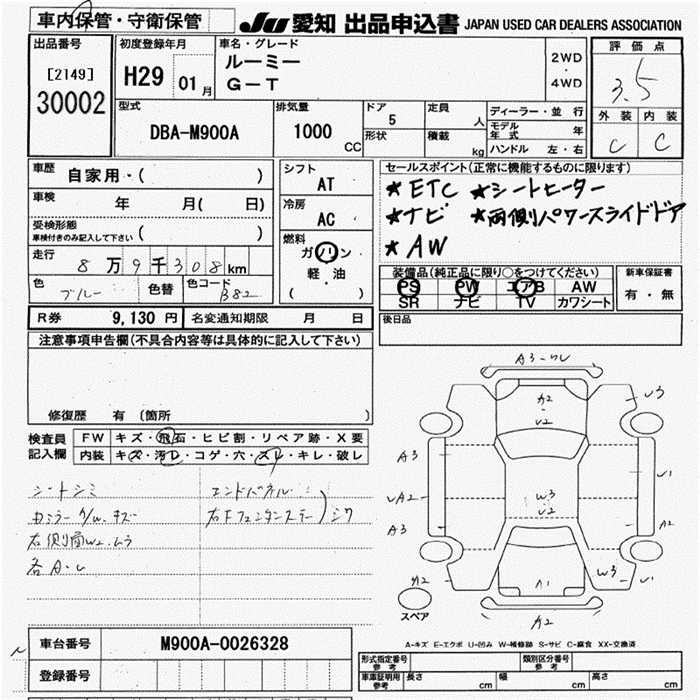 車内保管・守衛保管
Ju 愛知 出品申込書 JAPAN USED CAR DEALERS ASSOCIATION
出品番号
[2149]
30002
初度登録年月
H29 01月
車名・グレード
ルーミー
G-T
2WD
・
4WD
評価点
3.5
外装 内装
C C
型式
DBA-M900A
排気量
1000
CC
ドア
5
形状
定員
人
積載
kg
ディーラー・並行
モデル年式 年
ハンドル 左・右
車歴
自家用・( )
車検
年 月( 日)
受検形態
車検付きのみ記入して下さい ( )
走行
8万9千308km
色
ブルー
色替
色コード
B82
シフト
AT
冷房
AC
燃料
ガソリン
軽・油
( )
セールスポイント(正常に機能するものに限ります)
★ETC ★シートヒーター
★ナビ ★両側パワースライドドア
★AW
装備品(純正品に限り○をつけてください)
PS PW エアB AW
SR ナビ TV カワシート
新車保証書
有・無
R券 9,130 円 名変通知期限 月 日
後日品
注意事項申告欄(不具合内容等は具体的に記入して下さい)
修復歴 有 (箇所 )
検査員
記入欄
FW キズ・飛石・ヒビ割・リペア跡・X要
内装 キズ・汚レ・コゲ・穴・スレ・キレ・破レ
シートシミ
エンドパネル
右Fフェンダステー
シワ
右側面W2.ムラ
各A.U
A2
U2
U3
A3
UA2
A3
W3
U2
A2
W3
U1
A1
A2
A2
スペア
A-キズ E-エクボ U-凹み W-補修跡 S-サビ C-腐食 XX-交換済
車台番号 M900A-0026328
登録番号
形式指定番号
参考
類別区分番号
参考
車庫証明用
参考
長さ cm 幅 cm 高さ cm